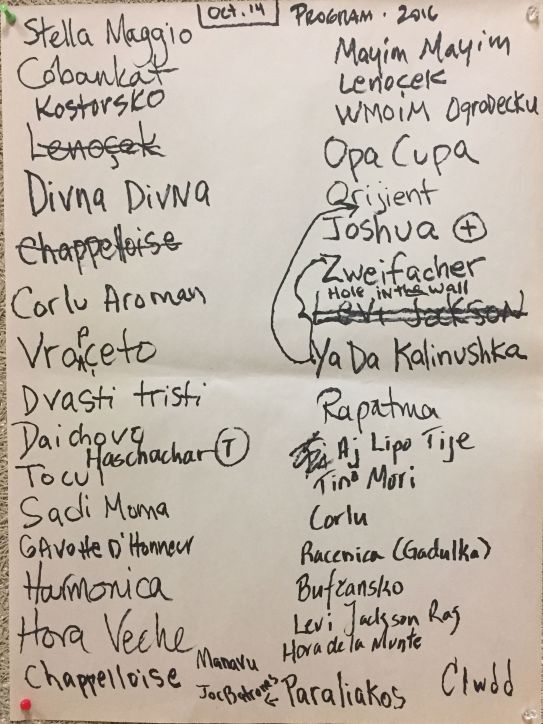 Oct. 14 PROGRAM. 2016
Stella Maggio
Cobankat
Kostorsko
Lenoçek
Divna Divna
Chappelloise
Corlu Aroman
Vrapçeto
Dvasti tristi
Daichovo
Haschachar T
Tocul
Sadi Moma
GAvotte D'Honneur
Harmonica
Hora Veche
Chappelloise
Mayim Mayim
Lenoçek
WMOiM Ogrodecku
Opa Cupa
Orijient
Joshua +
Zweifacher
Hole in the Wall
Levi Jackson
Ya Da Kalinushka
Rapatma
Aj Lipo Tije
Tino Mori
Corlu
Racenica (Gadulka)
Bufčansko
Levi Jackson Rag
Hora de la Munte
Manavu
Paraliakos
Clwdd